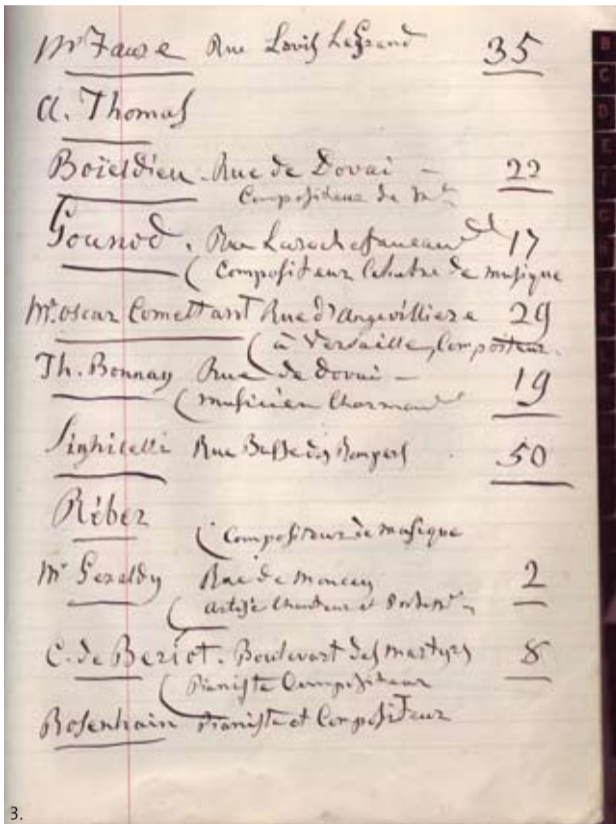 Mr Faure Rue Louis LeGrand 35
A. Thomas
Boïeldieu. Rue de Douai – 22
Compositeur de Mque
Gounod. Rue Larochefaucaud 17
Compositeur de musique
Mr. oscar Comettant Rue d'Angevilliere 29
à Versaille, Compositeur.
Th. Bonnay Rue de Douai – 19
musicien Charmant
Sighicelli Rue Basse des Rempars 50
Réber
Compositeur de musique
Mr Geraldy Rue de Moncey 2
artiste Chanteur et
C. de Beriot. Boulevart des martyrs 8
Pianiste Compositeur
Rosenhain Pianiste et Compositeur
B
C
D
E
3.